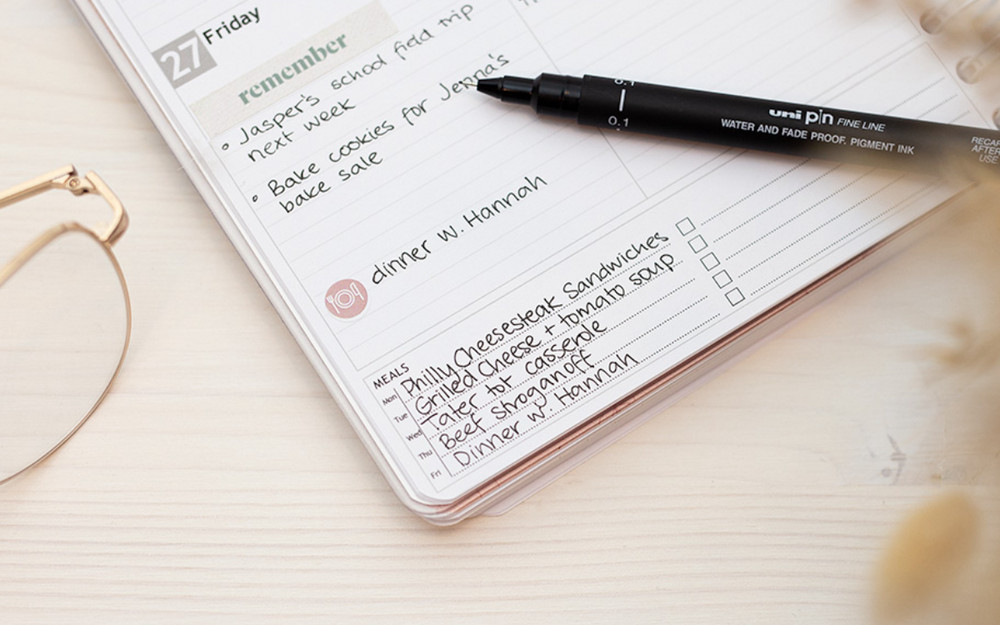 27 Friday
remember
• Jasper's school field trip
next week
• Bake cookies for Jenna's
bake sale
dinner w. Hannah
MEALS
Mon Philly Cheesesteak Sandwiches
Tue Grilled Cheese + tomato soup
Wed Tater tot casserole
Thu Beef Stroganoff
Fri Dinner w. Hannah
0.1
0.1
uni pin FINE LINE
WATER AND FADE PROOF. PIGMENT INK
AFTER
USE